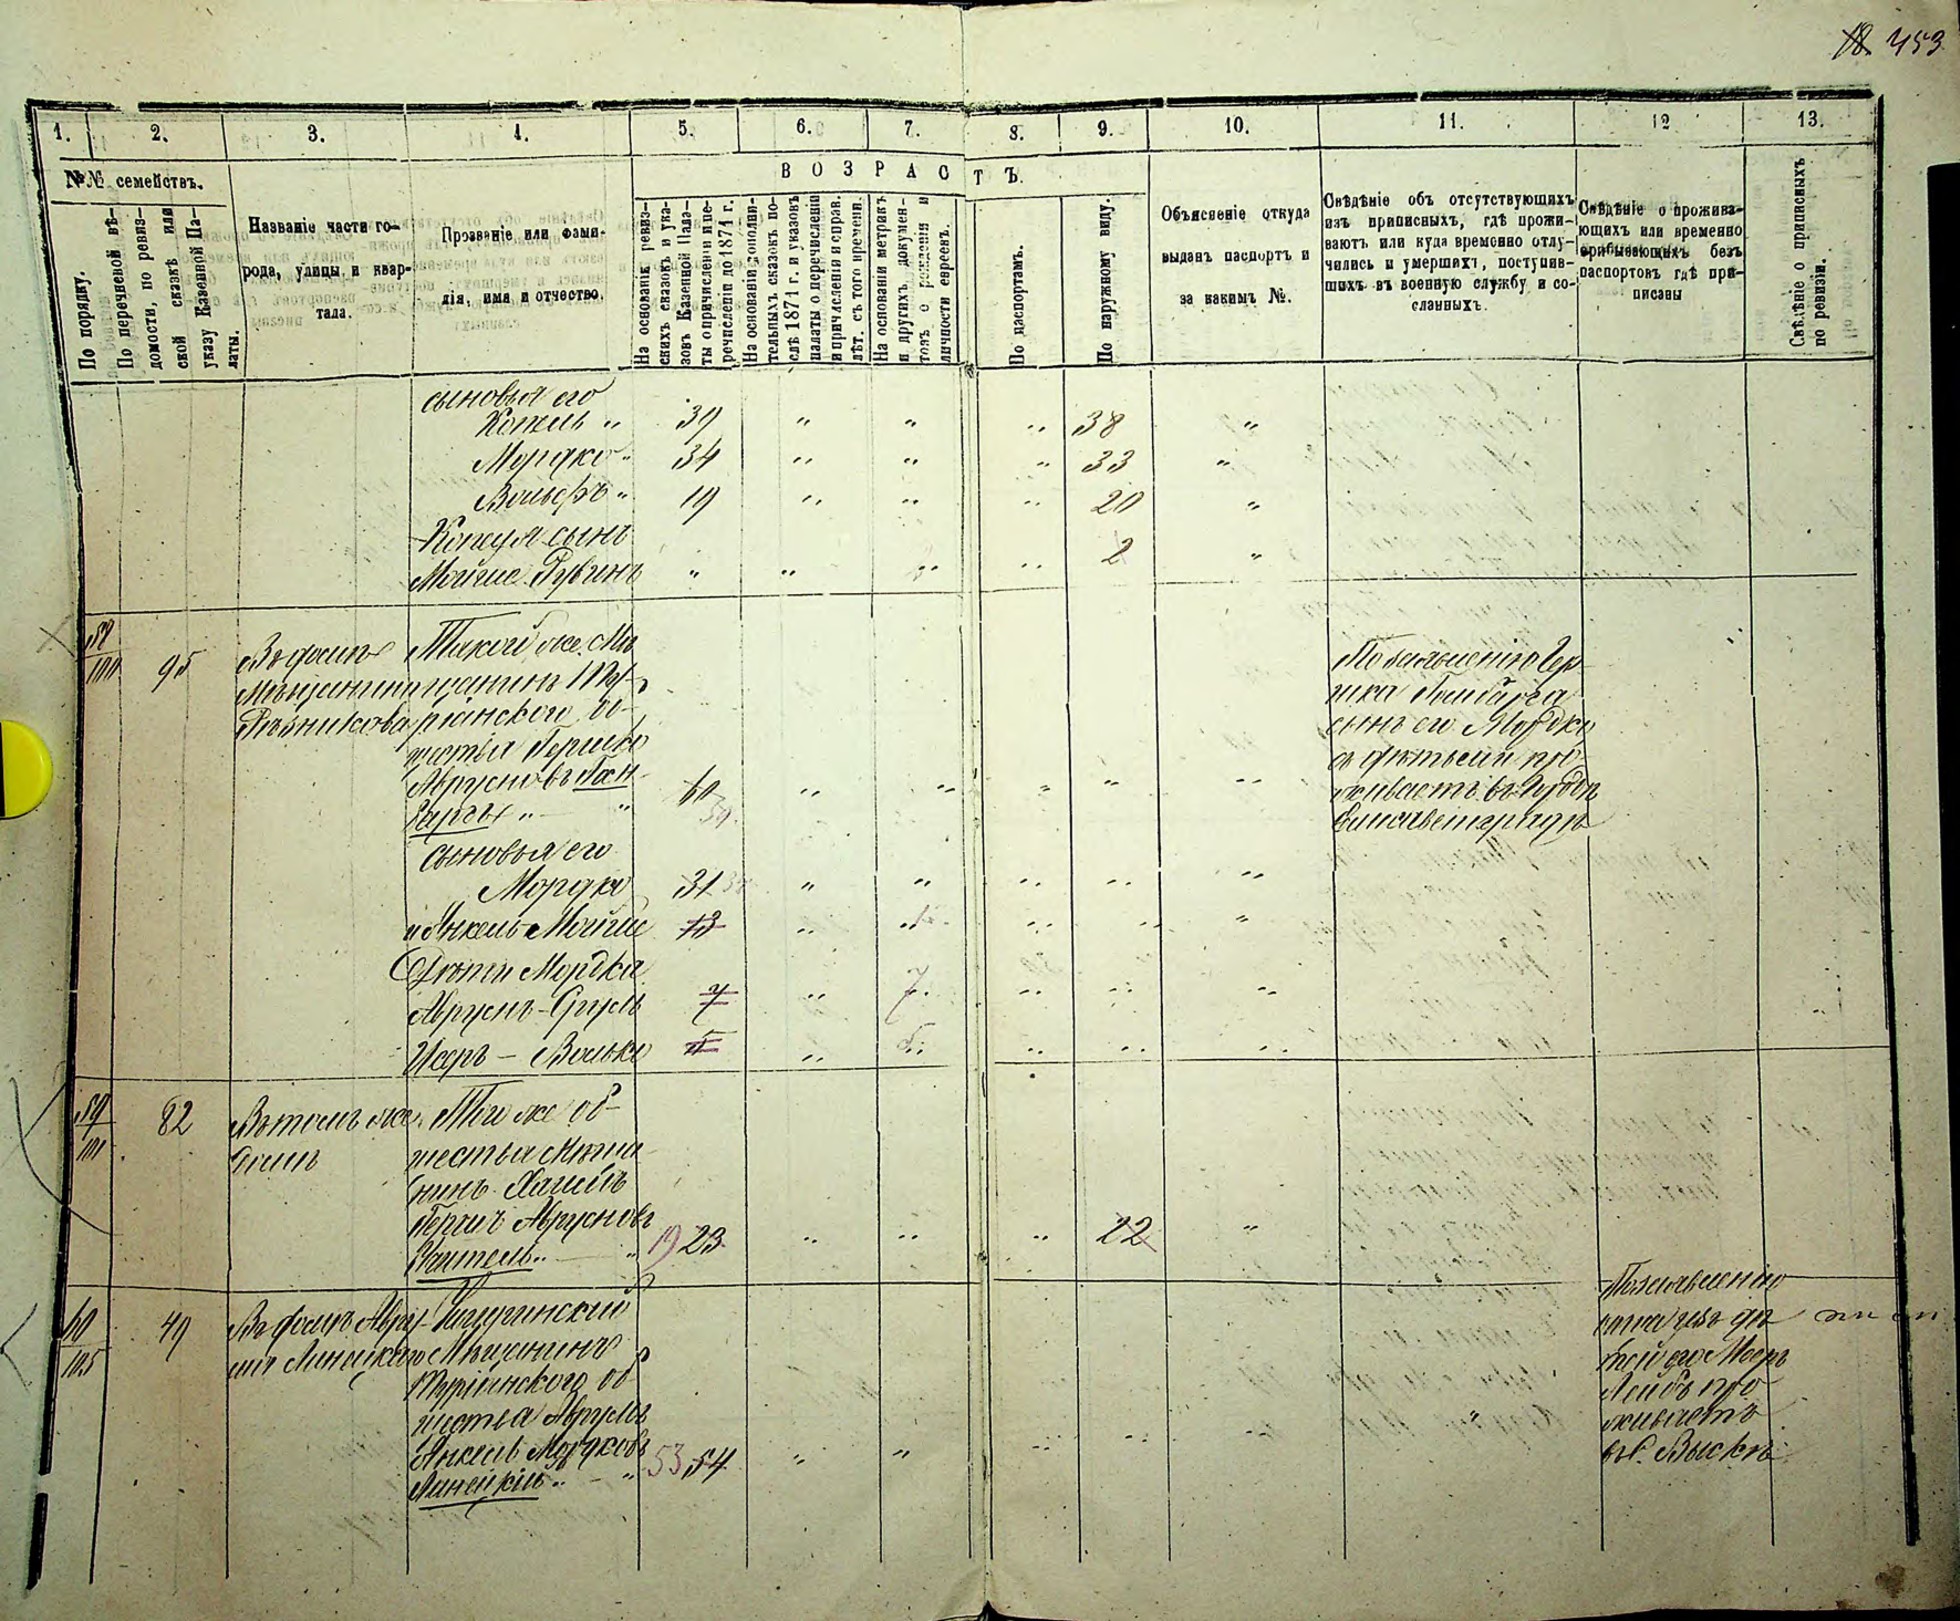 18. 453
1. 2. 3. 4. 5. 6. 7. 8. 9. 10. 11. 12 13.
№№ семействъ.
ВОЗРАСТЪ.
По порядку.
По перечневой вѣ-
домости, по ревиз-
ской сказкѣ или
указу Казенной Па-
латы.
Названіе части го-
рода, улицы и квар-
тала.
Прозваніе или фами-
лія, имя и отчество.
На основаніи ревиз-
скихъ сказокъ и ука-
зовъ Казенной Пала-
ты о причисленіи и пе-
речисленіи до 1874 г.
На основаніи дополни-
тельныхъ сказокъ по-
слѣ 1874 г. и указовъ
палаты о перечисленіи
и причисленіи и справ.
лѣт. съ того времени.
На основаніи метрикъ
и другихъ докумен-
товъ о рожденіи и
личности евреевъ.
По паспортамъ.
По наружному виду.
Объясненіе откуда
выданъ паспортъ и
за какимъ №.
Свѣдѣніе объ отсутствующихъ
изъ приписныхъ, гдѣ прожи-
ваютъ или куда временно отлу-
чились и умершихъ, поступив-
шихъ въ военную службу и со-
сланныхъ.
Свѣдѣніе о прожива-
ющихъ или временно
пребывающихъ безъ
паспортовъ гдѣ при-
писаны
Свѣдѣніе о приписныхъ
по ревизіи.
сыновья его
Копель „ 39 „ „ „ 38 „
Мордко „ 34 „ „ „ 33 „
Вольфъ „ 19 „ „ „ 20 „
Копеля сынъ
Мойше Рувинъ „ „ „ „ 2 „
58
100 95
Въ домѣ
Мѣщанина
Рѣзникова
Такой же Мѣ
щанинъ
ріанского об-
щества Гершко
Аврумовъ
60 59 „ „ „ „ „
сыновья его
Мордко 31 „ „ „ „ „
и Янкель Мойше 13 „ „ „ „ „
Дѣти Мордка
Аврумъ-Сруль 7 „ 7 „ „ „
Исеръ – Волько 5 „ „ „ „ „
По заявленію Гер
шка
сынъ его Мордко
съ дѣтьми про
живаетъ въ городѣ
Елисаветградѣ
59
101 82
Въ томъ же
домѣ
Того же об-
щества мѣща
нинъ Хаимъ
Гершъ Аврумовъ
19 23 „ „ „ 22 „
60
105 49
Въ домѣ Авру
ма Линецкаго
Чигиринскій
Мѣщанинъ
ріанского об
щества Аврумъ
Янкель Мордковъ
Линецкій „ „ 53 54 „ „ „ „ „
По заявленію
отца изъ дѣ
тей его Мееръ
Лейбъ про
живаетъ
въ с. Выскѣ